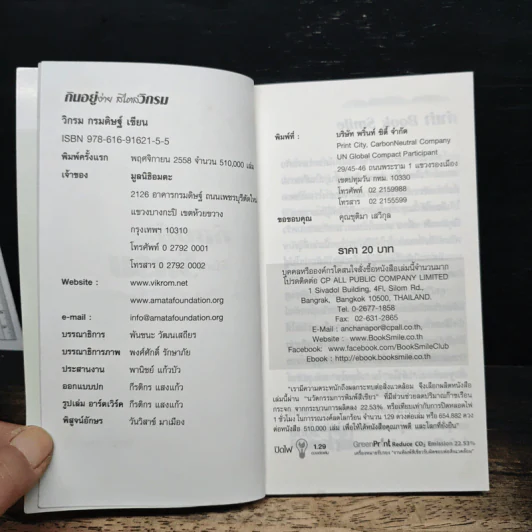 กินอยู่ง่าย สไตล์วิกรม
วิกรม กรมดิษฐ์ เขียน
ISBN 978-616-91621-5-5
พิมพ์ครั้งแรก พฤศจิกายน 2558 จำนวน 510,000 เล่ม
เจ้าของ มูลนิธิอมตะ
2126 อาคารกรมดิษฐ์ ถนนเพชรบุรีตัดใหม่
แขวงบางกะปิ เขตห้วยขวาง
กรุงเทพฯ 10310
โทรศัพท์ 0 2792 0001
โทรสาร 0 2792 0002
Website : www.vikrom.net
www.amatafoundation.org
e-mail : info@amatafoundation.org
บรรณาธิการ พันชนะ วัฒนเสถียร
บรรณาธิการภาพ พงศ์ศักดิ์ รักษาภัย
ประสานงาน พาณิชย์ แก้วบัว
ออกแบบปก กีรติกร แสงแก้ว
รูปเล่ม อาร์ตเวิร์ค กีรติกร แสงแก้ว
พิสูจน์อักษร วันวิสาข์ มาเมือง
พิมพ์ที่ : บริษัท พริ้นท์ ซิตี้ จำกัด
Print City, CarbonNeutral Company
UN Global Compact Participant
29/45-46 ถนนพระราม 1 แขวงรองเมือง
เขตปทุมวัน กทม. 10330
โทรศัพท์ 02 2159988
โทรสาร 02 2155599
ขอขอบคุณ คุณชุติมา เสวิกุล
ราคา 20 บาท
บุคคลหรือองค์กรใดสนใจสั่งซื้อหนังสือเล่มนี้จำนวนมาก
โปรดติดต่อ CP ALL PUBLIC COMPANY LIMITED
1 Sivadol Building, 4Fl, Silom Rd.,
Bangrak, Bangkok 10500, THAILAND.
Tel. 0-2677-1858
Fax: 02-631-2865
E-Mail : anchanapor@cpall.co.th,
Website : www.Booksmile.co.th
Facebook: www.facebook.com/BookSmileClub
Ebook : http://ebook.booksmile.co.th
"เรามีความตระหนักถึงผลกระทบต่อสิ่งแวดล้อม จึงเลือกผลิตหนังสือ
เล่มนี้ผ่าน "นวัตกรรมการพิมพ์สีเขียว" ที่มีส่วนช่วยลดปริมาณก๊าซเรือน
กระจก จากกระบวนการผลิตลง 22.53% หรือเทียบเท่ากับการปิดหลอดไฟ
1 ชั่วโมง ในการรณรงค์ลดโลกร้อน จำนวน 1.29 ดวงต่อเล่ม หรือ 654,882 ดวง
ต่อหนังสือ 510,000 เล่ม เพื่อให้ได้หนังสือคุณภาพดี และโลกที่ยั่งยืน"
ปิดไฟ 1.29 GreenPrint Reduce CO₂ Emission 22.53%